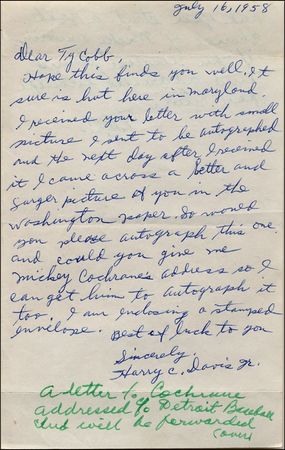 July 16, 1958
Dear Ty Cobb,
Hope this finds you well. It
sure is hot here in Maryland.
I received your letter with small
picture I sent to be autographed
and the next day after I received
it I came across a better and
larger picture of you in the
Washington paper. So would
you please autograph this one,
and could you give me
Mickey Cochrane's address so I
can get him to autograph it
too. I am enclosing a stamped
envelope. Best of luck to you
Sincerely,
Harry C. Davis Jr.
A letter to Cochrane
addressed % Detroit Baseball
Club will be forwarded
(over)